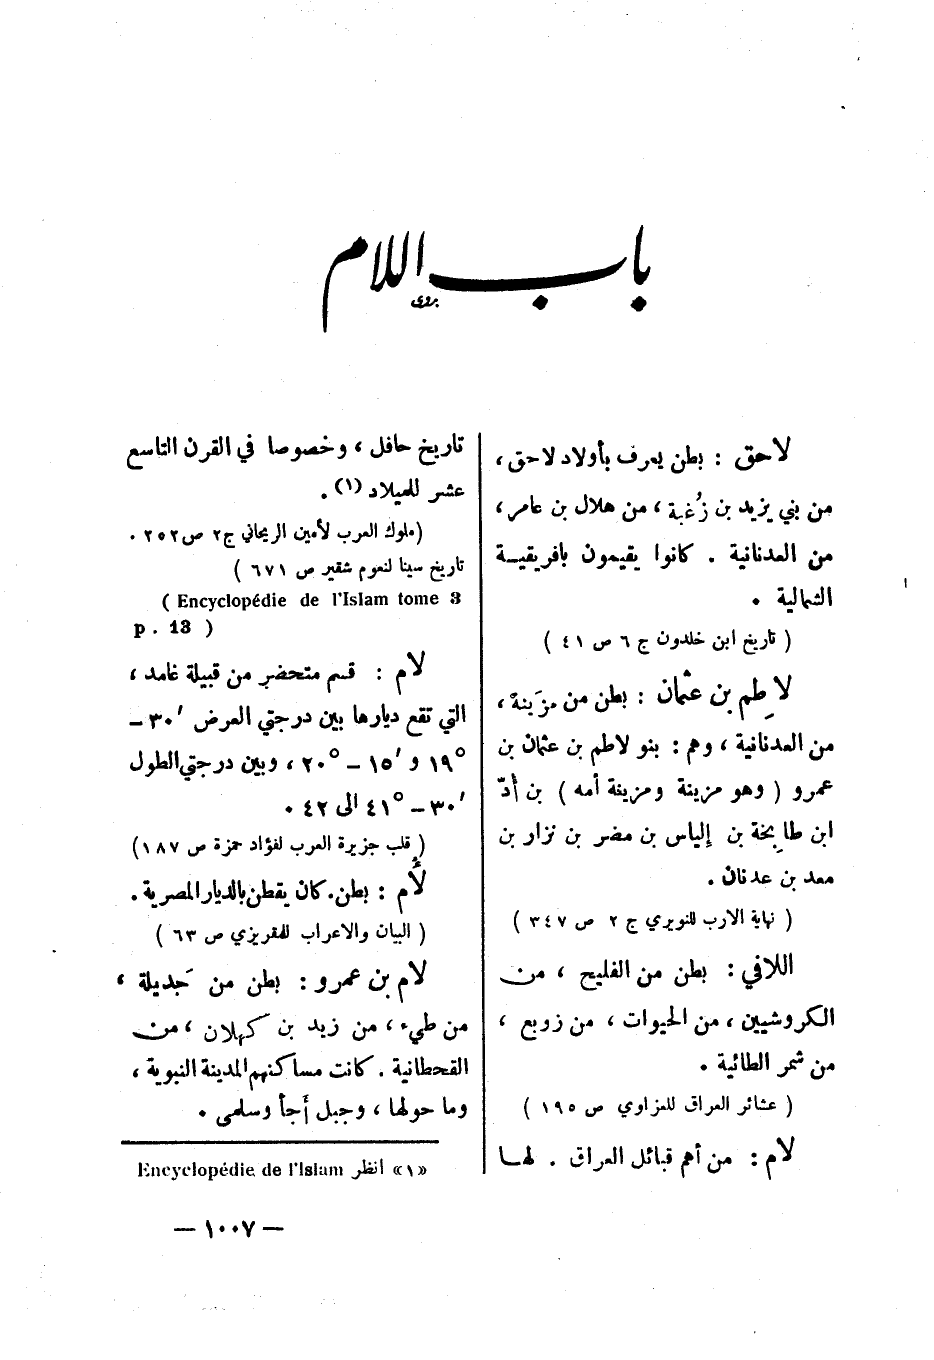 باب اللام
بروى
لاحق : بطن يعرف بأولاد لاحق ،
من بني يزيد بن زُغبة ، من هلال بن عامر ،
من العدنانية . كانوا يقيمون بافريقيـة
الشمالية .
( تاريخ ابن خلدون ج ٦ ص ٤١ )
لاطِم بن عثمان : بطن من مزَينة ،
من العدنانية ، وهم : بنو لاطم بن عثمان بن
عمرو ( وهو مزينة ومزينة أمه ) بن أدّ
ابن طابِخة بن إلياس بن مضر بن نزار بن
معد بن عدنان .
( نهاية الارب للنويري ج ٢ ص ٣٤٧ )
اللافي : بطن من الفليح ، من
الكروشيين ، من الحيوات ، من زوبع ،
من شمر الطائية .
( عشائر العراق للعزاوي ص ١٩٥ )
لام : من أهم قبائل العراق . لهـا
تاريخ حافل ، وخصوصا في القرن التاسع
عشر للميلاد (١) .
(ملوك العرب لأمين الريحاني ج٢ ص٢٥٢ .
تاريخ سينا لنعوم شقير ص ٦٧١ )
( Encyclopédie de l'Islam tome 3
p. 13 )
لام : قسم متحضر من قبيلة غامد ،
التي تقع ديارها بين درجتي العرض ′٣٠ –
°١٩ و ′١٥ – °٢٠ ، وبين درجتي الطول
′٣٠ – °٤١ الى ٤٢ .
( قلب جزيرة العرب لفؤاد حمزة ص ١٨٧ )
لأم : بطن . كان يقطن بالديار المصرية .
( البيان والاعراب للمقريزي ص ٦٣ )
لام بن عمرو : بطن من جَديلة ،
من طيء ، من زيد بن كهلان ، من
القحطانية . كانت مساكنهم المدينة النبوية ،
وما حولها ، وجبل أجأ وسلمى .
«١» انظر Encyclopédie de l'Islam
— ١٠٠٧ —